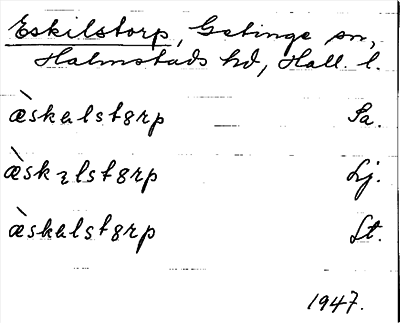 Eskilstorp, Getinge sn,
Halmstads hd, Hall. l.
æ̀skalstɤrp Sa.
æ̀skəlstɤrp Lj.
æ̀skalstɤrp St.
1947.